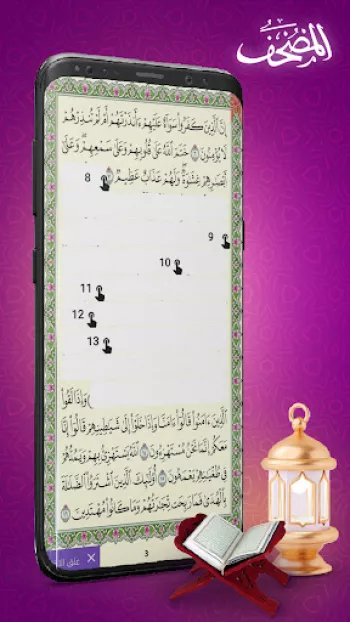 المصحف
إِنَّ ٱلَّذِينَ كَفَرُوا۟ سَوَآءٌ عَلَيْهِمْ ءَأَنذَرْتَهُمْ أَمْ لَمْ تُنذِرْهُمْ
لَا يُؤْمِنُونَ ٦ خَتَمَ ٱللَّهُ عَلَىٰ قُلُوبِهِمْ وَعَلَىٰ سَمْعِهِمْ وَعَلَىٰٓ
أَبْصَٰرِهِمْ غِشَٰوَةٌ وَلَهُمْ عَذَابٌ عَظِيمٌ ٧
8
9
10
11
12
13
وَإِذَا لَقُوا۟
ٱلَّذِينَ ءَامَنُوا۟ قَالُوٓا۟ ءَامَنَّا وَإِذَا خَلَوْا۟ إِلَىٰ شَيَٰطِينِهِمْ قَالُوٓا۟ إِنَّا
مَعَكُمْ إِنَّمَا نَحْنُ مُسْتَهْزِءُونَ ١٤ ٱللَّهُ يَسْتَهْزِئُ بِهِمْ وَيَمُدُّهُمْ
فِى طُغْيَٰنِهِمْ يَعْمَهُونَ ١٥ أُو۟لَٰٓئِكَ ٱلَّذِينَ ٱشْتَرَوُا۟ ٱلضَّلَٰلَةَ
بِٱلْهُدَىٰ فَمَا رَبِحَت تِّجَٰرَتُهُمْ وَمَا كَانُوا۟ مُهْتَدِينَ ١٦
3
× علق